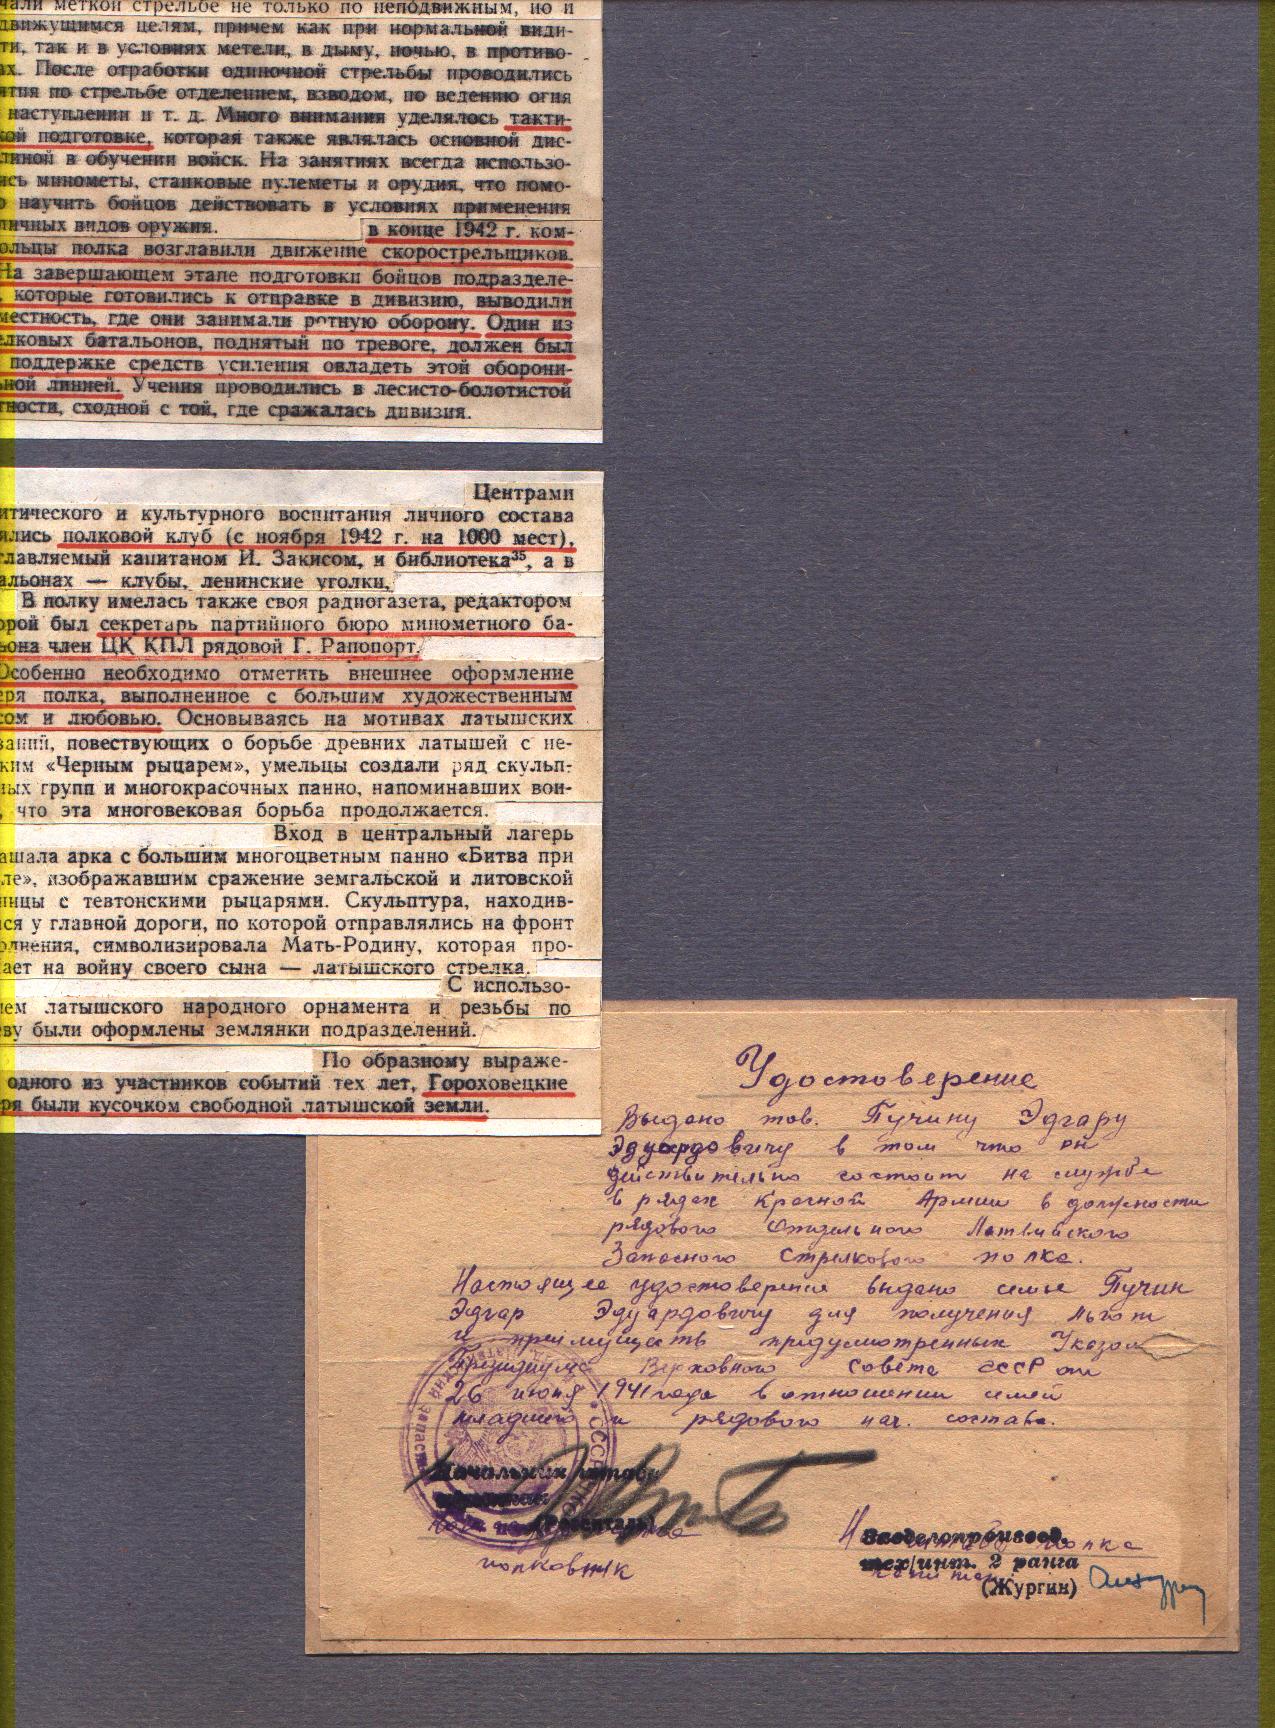 чали меткой стрельбе не только по неподвижным, но и
движущимся целям, причем как при нормальной види-
ти, так и в условиях метели, в дыму, ночью, в противо-
ах. После отработки одиночной стрельбы проводились
ятия по стрельбе отделением, взводом, по ведению огня
наступлении и т. д. Много внимания уделялось такти-
кой подготовке, которая также являлась основной дис-
линой в обучении войск. На занятиях всегда использо-
ись минометы, станковые пулеметы и орудия, что помо-
о научить бойцов действовать в условиях применения
личных видов оружия. в конце 1942 г. ком-
ольцы полка возглавили движение скорострельщиков.
На завершающем этапе подготовки бойцов подразделе-
, которые готовились к отправке в дивизию, выводили
местность, где они занимали ротную оборону. Один из
елковых батальонов, поднятый по тревоге, должен был
поддержке средств усиления овладеть этой оборони-
ьной линией. Учения проводились в лесисто-болотистой
тности, сходной с той, где сражалась дивизия.
Центрами
итического и культурного воспитания личного состава
ялись полковой клуб (с ноября 1942 г. на 1000 мест),
главляемый капитаном И. Закисом, и библиотека³⁵, а в
альонах — клубы, ленинские уголки,
В полку имелась также своя радиогазета, редактором
орой был секретарь партийного бюро минометного ба-
ьона член ЦК КПЛ рядовой Г. Рапопорт.
Особенно необходимо отметить внешнее оформление
еря полка, выполненное с большим художественным
сом и любовью. Основываясь на мотивах латышских
заний, повествующих о борьбе древних латышей с не-
ким «Черным рыцарем», умельцы создали ряд скульп-
ных групп и многокрасочных панно, напоминавших вои-
, что эта многовековая борьба продолжается.
Вход в центральный лагерь
ашала арка с большим многоцветным панно «Битва при
ле», изображавшим сражение земгальской и литовской
ницы с тевтонскими рыцарями. Скульптура, находив-
ся у главной дороги, по которой отправлялись на фронт
олнения, символизировала Мать-Родину, которая про-
ает на войну своего сына — латышского стрелка.
С использо-
ием латышского народного орнамента и резьбы по
еву были оформлены землянки подразделений.
По образному выраже-
одного из участников событий тех лет, Гороховецкие
ря были кусочком свободной латышской земли.
Удостоверение
Выдано тов. Пучину Эдгару
Эдуардовичу в том что он
действительно состоит на службе
в рядах Красной Армии в должности
рядового Отдельного Латвийского
Запасного Стрелкового полка.
Настоящее удостоверение выдано семье Пучин
Эдгар Эдуардовичу для получения льгот
и преимуществ предусмотренных Указом
Президиума Верховного Совета СССР от
26 июня 1941 года в отношении семей
младшего и рядового нач. состава.
Начальник штаба
полковник
Завделопроизвод.
тех/инт. 2 ранга
(Жургин)